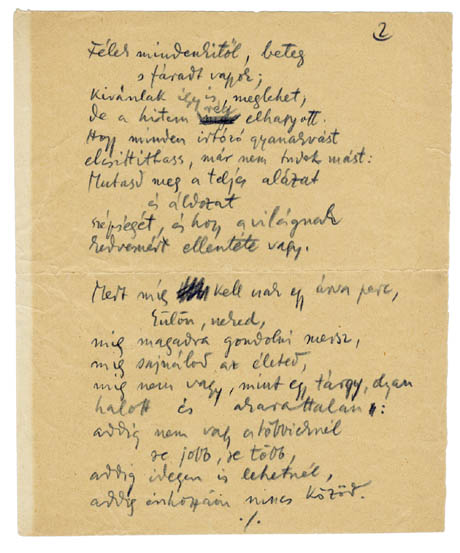 2
Félek mindenkitől, beteg
s fáradt vagyok;
Kivánlak így is, meglehet,
de a hitem rég elhagyott.
Hogy minden irtózó gyanakvást
elcsittithass, már nem tudok mást:
Mutasd meg a teljes alázat
és áldozat
szépségét, és hogy a világnak
kedvemért ellentéte vagy.
Mert míg kell csak egy árva perc,
külön, neked,
míg magadra gondolni mersz,
míg sajnálod az életed,
míg nem vagy, mint egy tárgy, olyan
halott és akarattalan:
addig nem vagy a többieknél
se jobb, se több,
addig idegen is lehetnél,
addig énhozzám nincs közöd.
./.